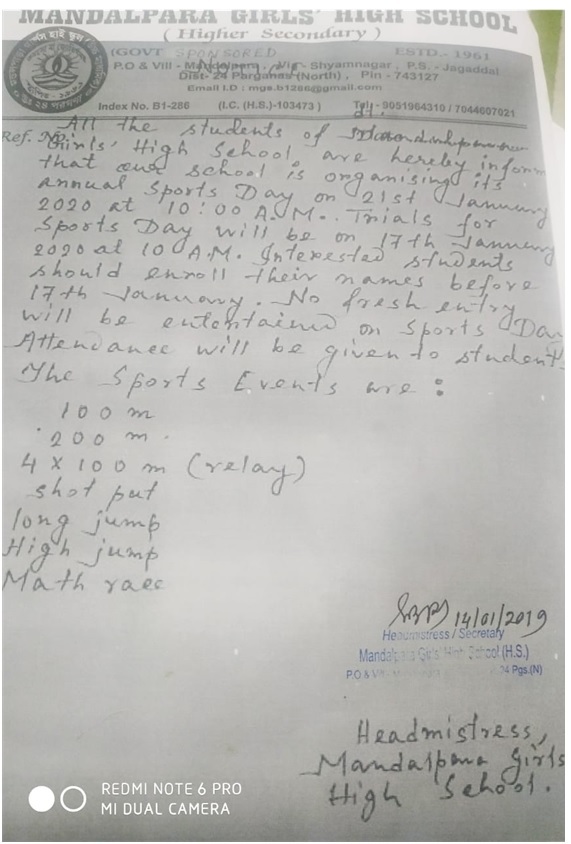 MANDALPARA GIRLS' HIGH SCHOOL
( Higher Secondary )
(GOVT SPONSORED ESTD.- 1961
P.O & Vill - Mandalpara, Via - Shyamnagar, P.S. - Jagaddal
Dist- 24 Parganas (North), Pin - 743127
Email I.D : mgs.b1286@gmail.com
Index No. B1-286 (I.C. (H.S.)-103473 ) 9051964310 / 7044607021
Ref. No.
All the students of
Girls' High School are hereby inform
that our school is organising its
annual Sports Day on 21st January
2020 at 10:00 A.M. Trials for
Sports Day will be on 17th January
2020 at 10 A.M. Interested students
should enroll their names before
17th January. No fresh entry
will be entertained on Sports Day
Attendance will be given to student
The Sports Events are :
100 m
200 m.
4 x 100 m (relay)
shot put
long jump
High jump
Math race
14/01/2019
Headmistress / Secretary
Mandalpara Girls' High School (H.S.)
P.O & Vill - 24 Pgs.(N)
Headmistress,
Mandalpara Girls
High School.
REDMI NOTE 6 PRO
MI DUAL CAMERA